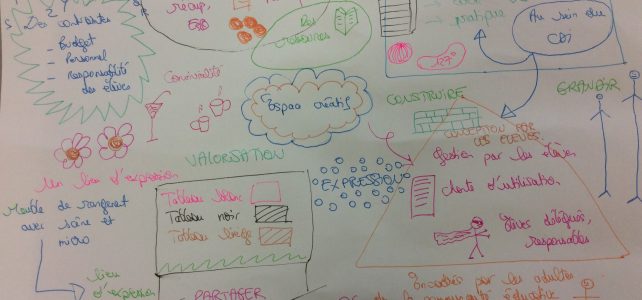 récup,
Des contraintes
- Budget
- Personnel
- Responsabilité
des élèves
Convivialité
Des
ressources
pratique
Au sein du
CDI
Espace créatif
CONSTRUIRE
GRANDIR
CONCEPTION PAR
LES ÉLÈVES
Gestion par les élèves
charte d'utilisation
élèves délégués,
responsables
Encadrés par les adultes
de la communauté éducative
EXPRESSION
VALORISATION
Tableau blanc
Tableau noir
Tableau liège
PARTAGER
Un lieu d'expression
Meuble de rangement
avec scène et
micro
lieu
d'expression